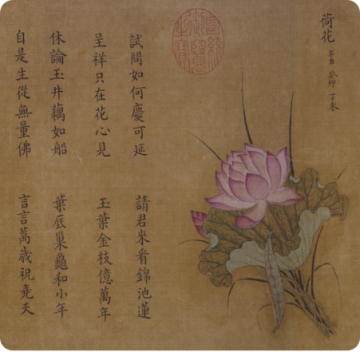 荷花 癸卯 丁未
試問如何慶可延 請君來看錦池蓮
呈祥只在花心見 玉葉金枝億萬年
休論玉井藕如船 葉底巢龜和小年
自是生從無量佛 言言萬歲祝堯天